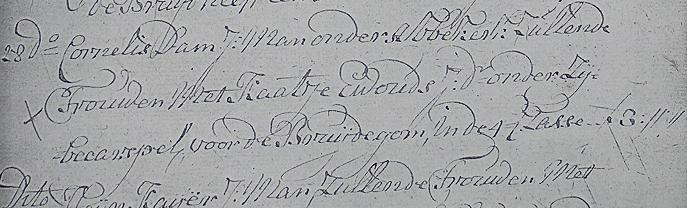 de Bruijdegom
28 Do Cornelis Dam J:Man onder Abbekerk: Zullende
Trouwen Met Kaatje Ewouds J:Dr onder Zij-
becarspel, voor de Bruijdegom, in de 4 Classe f3:":"
Dito Teijn Kaijer J:Man Zullende Trouwen Met